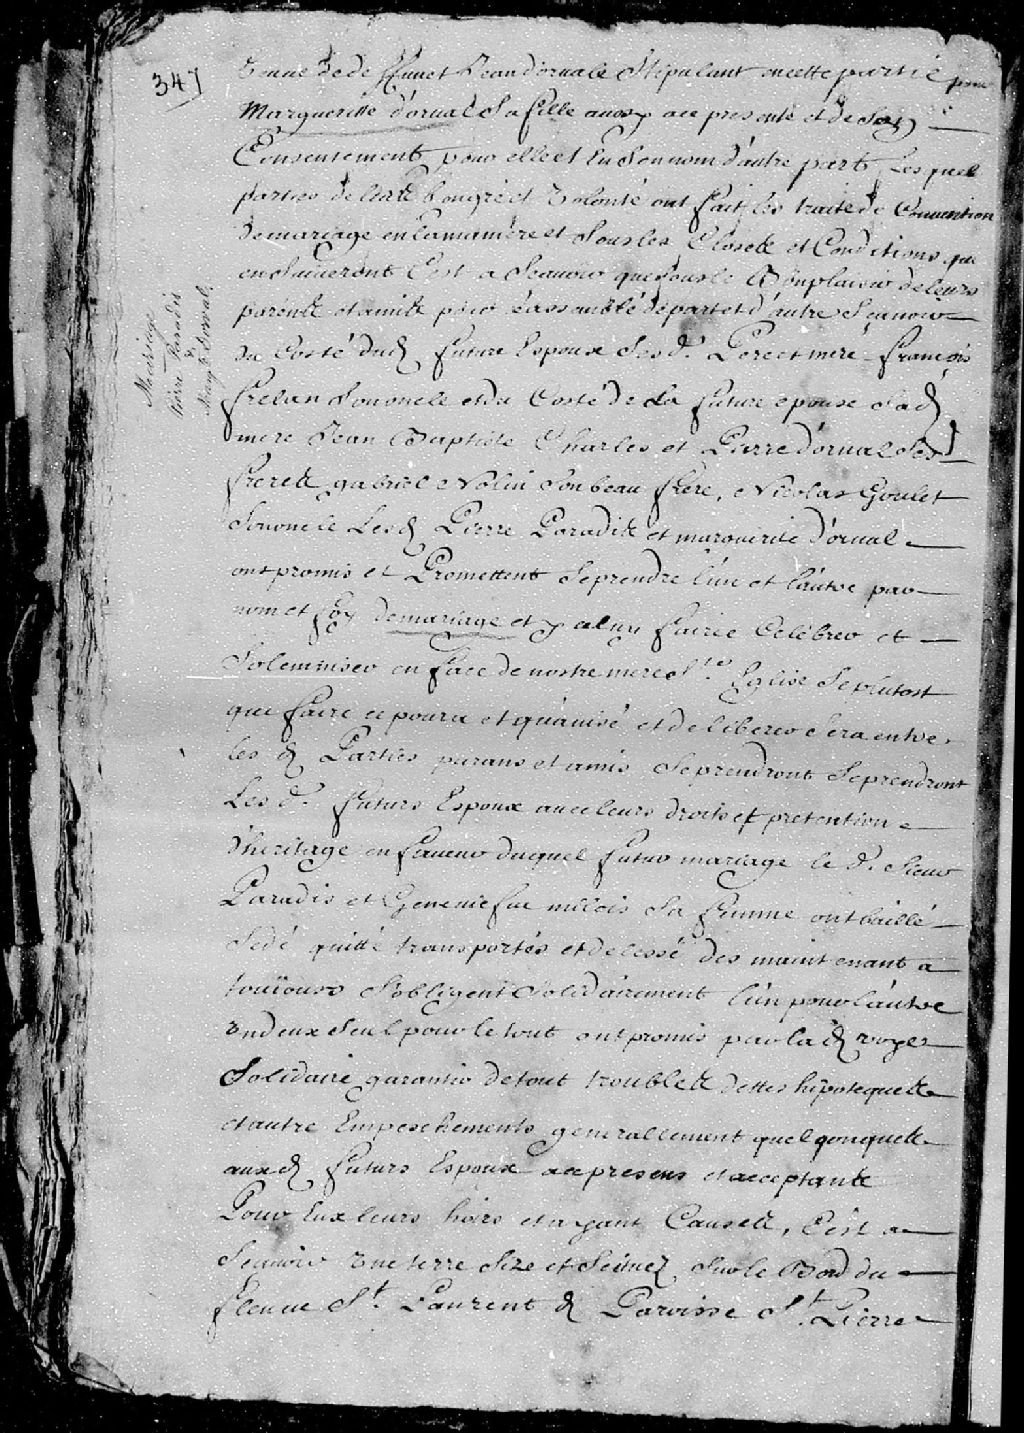 347
veuue de deffunct Jean dornale Stipulant encette partie pour
Margueritte dornal Sa fille aussy a ce presente et de Son
Consentement pour elle et En Son nom d'autre part, Lesquel
parties de leur bongré et Volonté ont fait les traité de Convention
de mariage en lamaniere et Sousles Closeck et Conditions qui
en Suiueront C'est a Scauoir que Sousle Bonplaisir de leurs
parentz et amitz pour ce assemblé de part et d'autre Scauoir
du Costé dud Futur Espoux Sesd. Pere et mere François
frelan Son oncle et du Costé de la future epouse Sad
mere Jean Baptiste Charles et Pierre dornal Ses
frerez gabriel Nolin Son beau frere, Nicolas Goulet
Son oncle Lesd Pierre Paradiz et marguerite d'ornal
ont promis et Promettent Seprendre l'un et l'autre par
nom et foy demariage et y celuy fairee Celebrer et
Solemniser en face de nostre mere Ste. Eglise Seplutost
que faire ce poura et qu'auisé et deliberer Sera entre
les d Parties parans et amis Seprendront Seprendront
Les d. Futurs Espoux auec leurs droits et pretention
d'heritage en faueur duquel futur mariage le d. Sieur
Paradis et Geneuiefue millois Sa femme ont baillé
Sedé quitté transportés et delessé des maintenant a
touiours S'obligent Solidairement l'un pour l'autre
Un deux Seul pour le tout ont promis par la d voye
Solidaire garantir de tout troublez dettes hipotequez
et autre Empeschements generallement quelqonquez
aux d Futurs Espoux a ce presens et acceptantz
Pour Eux leurs hoirs et ayant Causez, C'est a
Scauoir Une terre Size et Scituez Sur le Bord du
fleuue St. Laurent d Paroisse St. Pierre
Mariage
Pierre Paradis
&
Marg. Dorval.